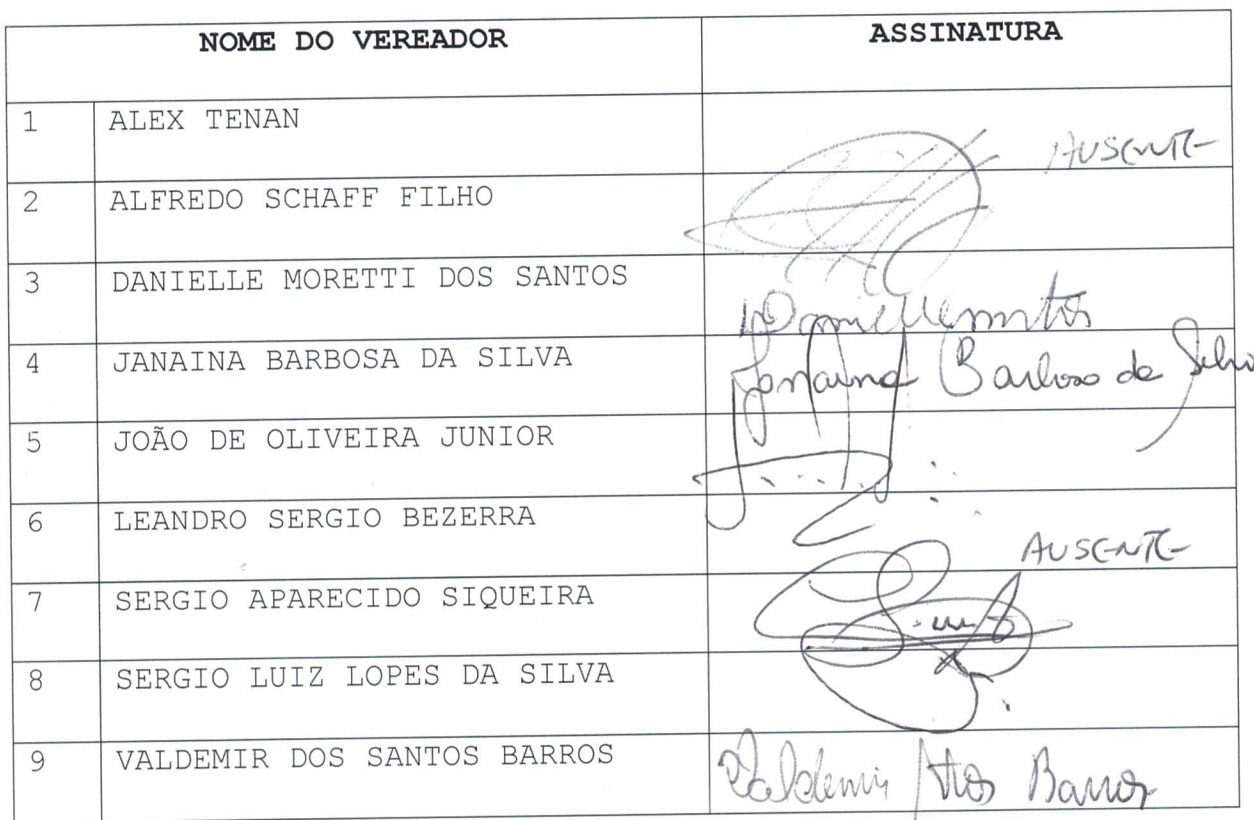 NOME DO VEREADOR ASSINATURA
1 ALEX TENAN AUSENTE
2 ALFREDO SCHAFF FILHO
3 DANIELLE MORETTI DOS SANTOS
4 JANAINA BARBOSA DA SILVA Janaina Barbosa da Silva
5 JOÃO DE OLIVEIRA JUNIOR
6 LEANDRO SERGIO BEZERRA AUSENTE
7 SERGIO APARECIDO SIQUEIRA
8 SERGIO LUIZ LOPES DA SILVA
9 VALDEMIR DOS SANTOS BARROS Valdemir Stos Barros